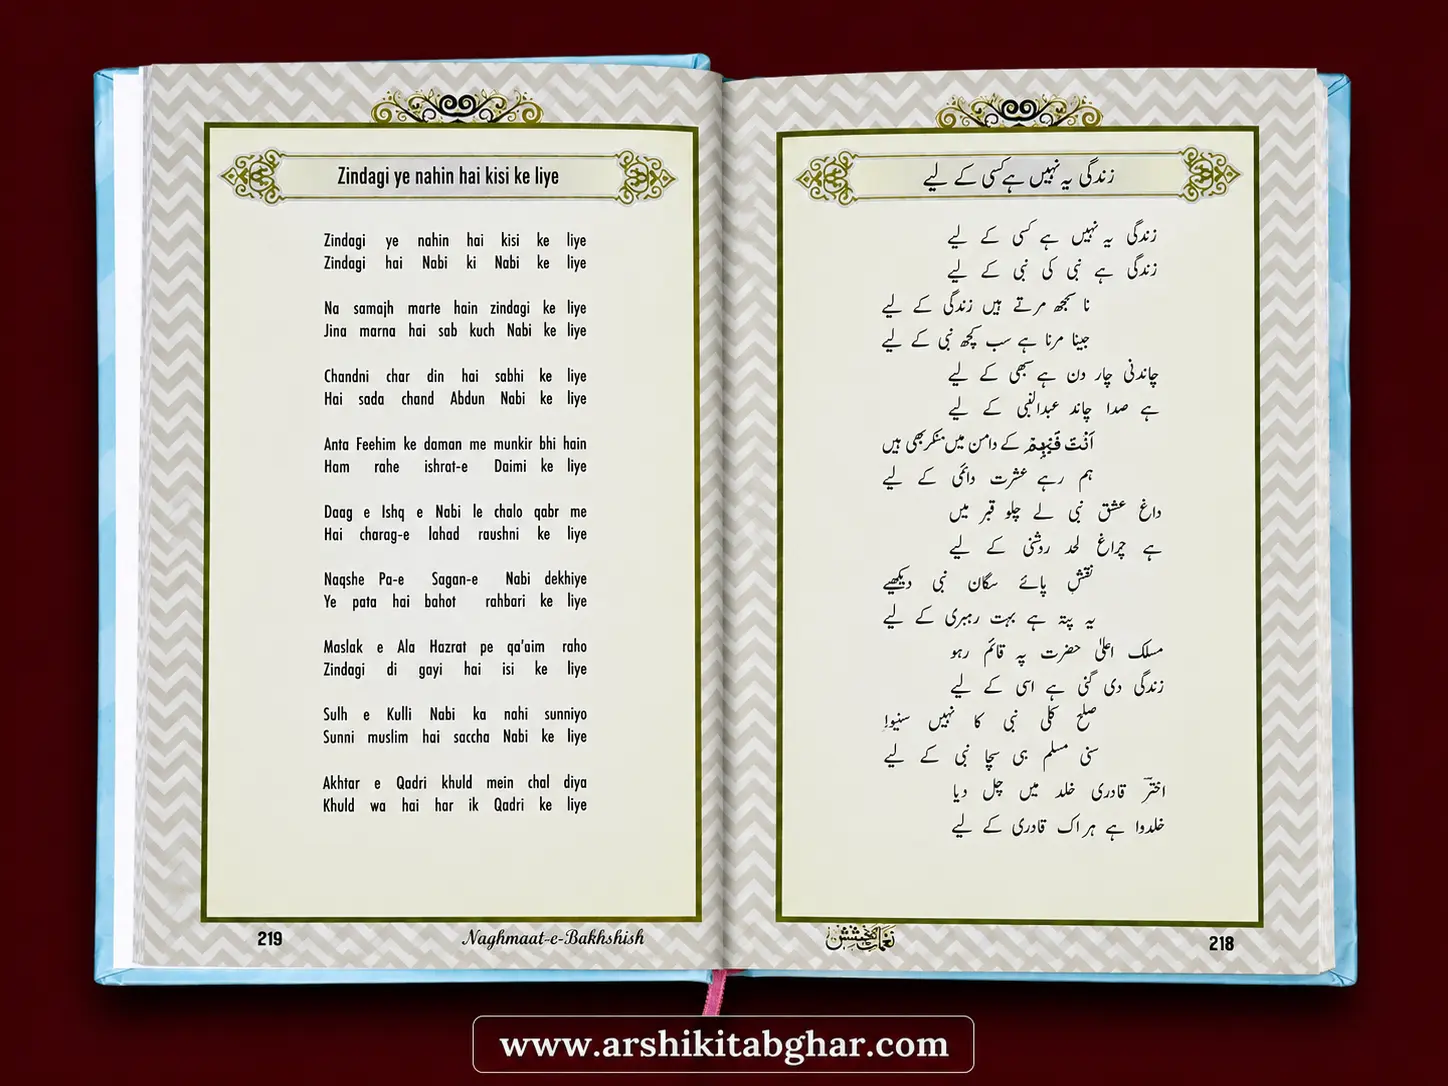 Zindagi ye nahin hai kisi ke liye
Zindagi ye nahin hai kisi ke liye
Zindagi hai Nabi ki Nabi ke liye
Na samajh marte hain zindagi ke liye
Jina marna hai sab kuch Nabi ke liye
Chandni char din hai sabhi ke liye
Hai sada chand Abdun Nabi ke liye
Anta Feehim ke daman me munkir bhi hain
Ham rahe ishrat-e Daimi ke liye
Daag e Ishq e Nabi le chalo qabr me
Hai charag-e lahad raushni ke liye
Naqshe Pa-e Sagan-e Nabi dekhiye
Ye pata hai bahot rahbari ke liye
Maslak e Ala Hazrat pe qa'aim raho
Zindagi di gayi hai isi ke liye
Sulh e Kulli Nabi ka nahi sunniyo
Sunni muslim hai saccha Nabi ke liye
Akhtar e Qadri khuld mein chal diya
Khuld wa hai har ik Qadri ke liye
219
Naghmaat-e-Bakhshish
زندگی یہ نہیں ہے کسی کے لیے
زندگی یہ نہیں ہے کسی کے لیے
زندگی ہے نبی کی نبی کے لیے
نا سمجھ مرتے ہیں زندگی کے لیے
جینا مرنا ہے سب کچھ نبی کے لیے
چاندنی چار دن ہے سبھی کے لیے
ہے صدا چاند عبدالنبی کے لیے
اَنْتَ فِيْهِمْ کے دامن میں منکر بھی ہیں
ہم رہے عشرت دائمی کے لیے
داغ عشق نبی لے چلو قبر میں
ہے چراغ لحد روشنی کے لیے
نقشِ پائے سگان نبی دیکھیے
یہ پتہ ہے بہت رہبری کے لیے
مسلک اعلیٰ حضرت پہ قائم رہو
زندگی دی گئی ہے اسی کے لیے
صلح کلی نبی کا نہیں سنیوا!
سنی مسلم ہی سچا نبی کے لیے
اخترؔ قادری خلد میں چل دیا
خلدوا ہے ہر اک قادری کے لیے
نغمات بخشش
218
www.arshikitabghar.com